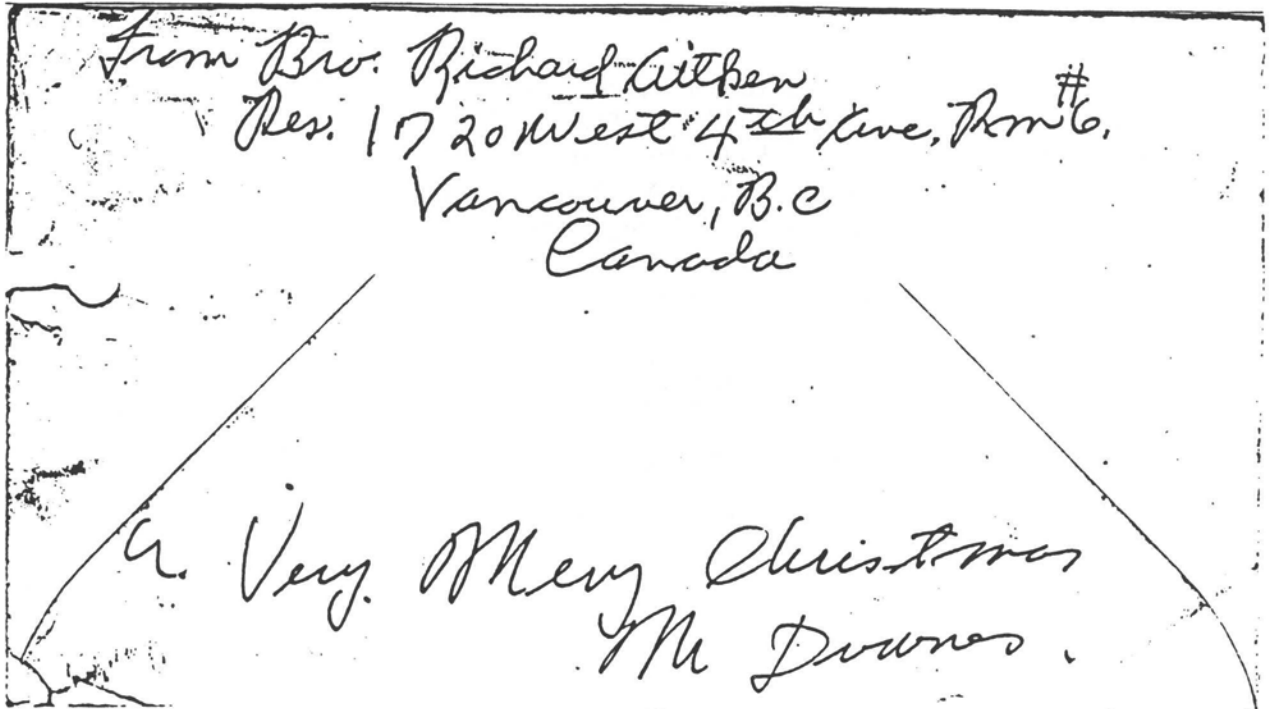 From Bro. Richard Aitken
Res. 1720 West 4th Ave, Rm #6.
Vancouver, B.C
Canada
A. Very. Merry Christmas
Mr Downes.